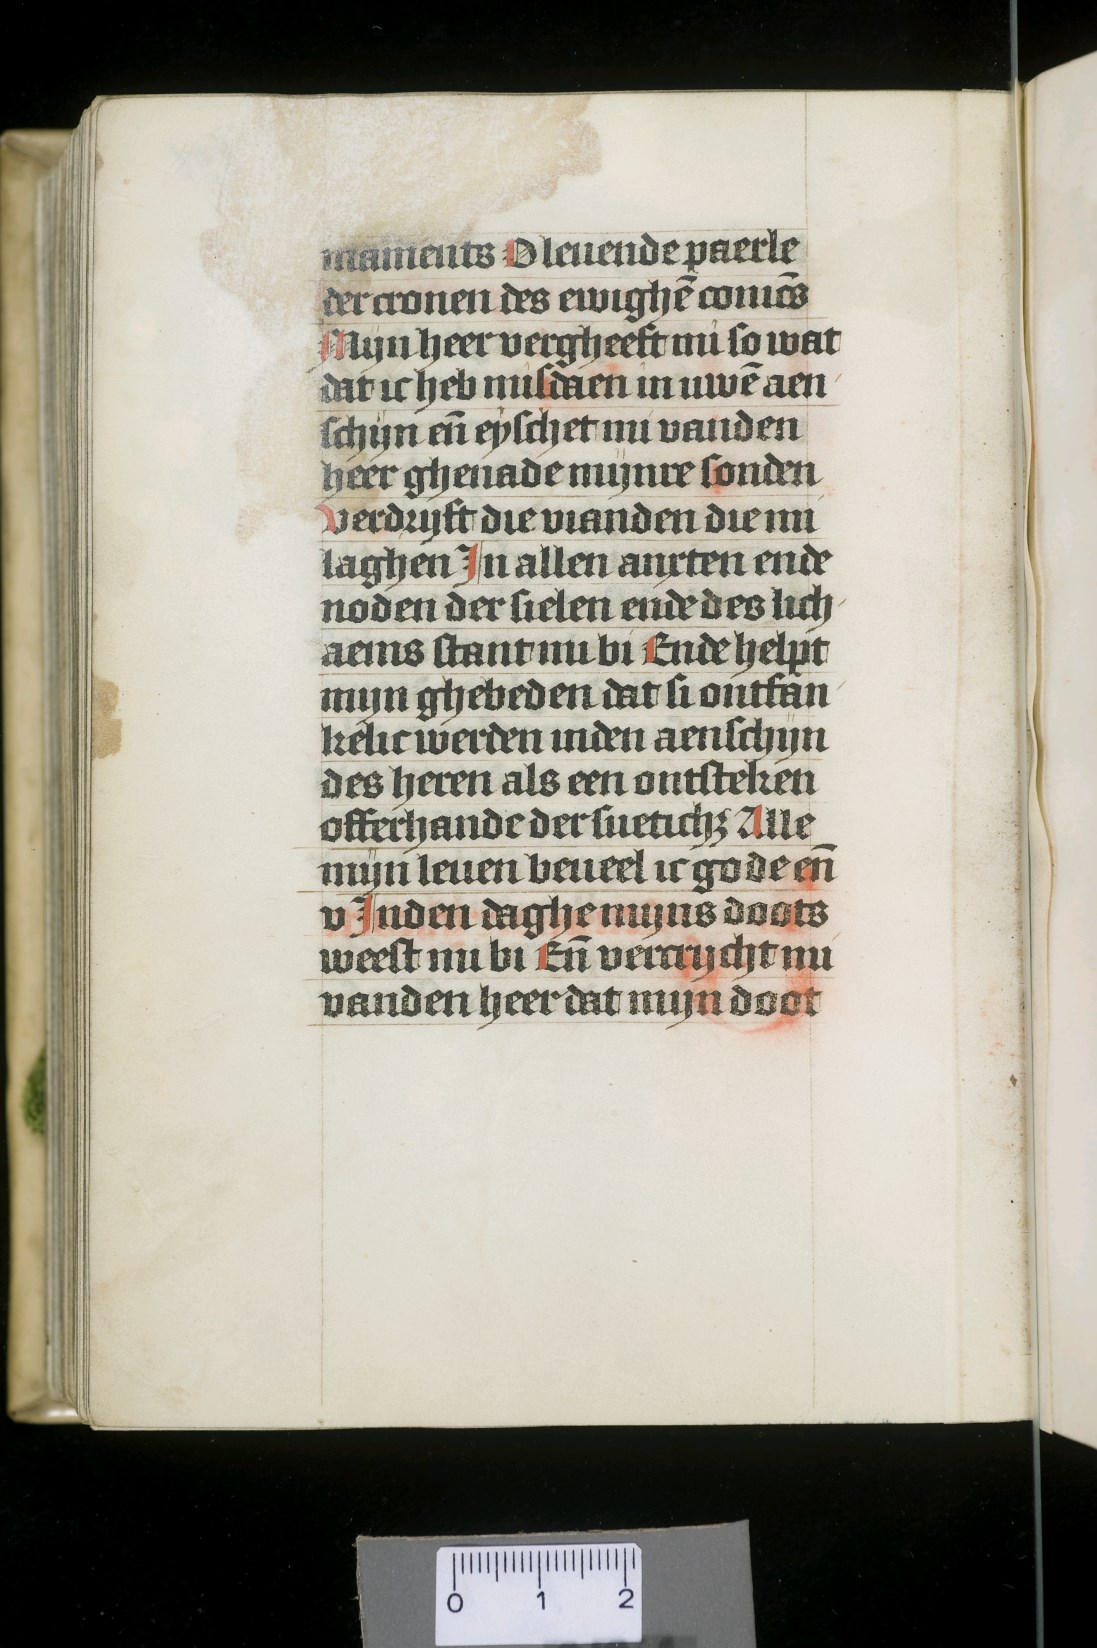 maments O leuende paerle
der cronen des ewighē conīcs
Mijn heer vergheeft mi so wat
dat ic heb misdaen in uwē aen
schijn eñ eyschet mi vanden
heer ghenade mijnre sonden
Verdrijft die vianden die mi
laghen In allen anxten ende
noden der sielen ende des lich
aems stant mi bi Ende helpt
mijn ghebeden dat si ontfan
kelic werden inden aenschijn
des heren als een ontsteken
offerhande der suetichꝫ Alle
mijn leuen beueel ic gode eñ
v Inden daghe mijns doots
weest mi bi Eñ vercrijcht mi
vanden heer dat mijn doot
0 1 2